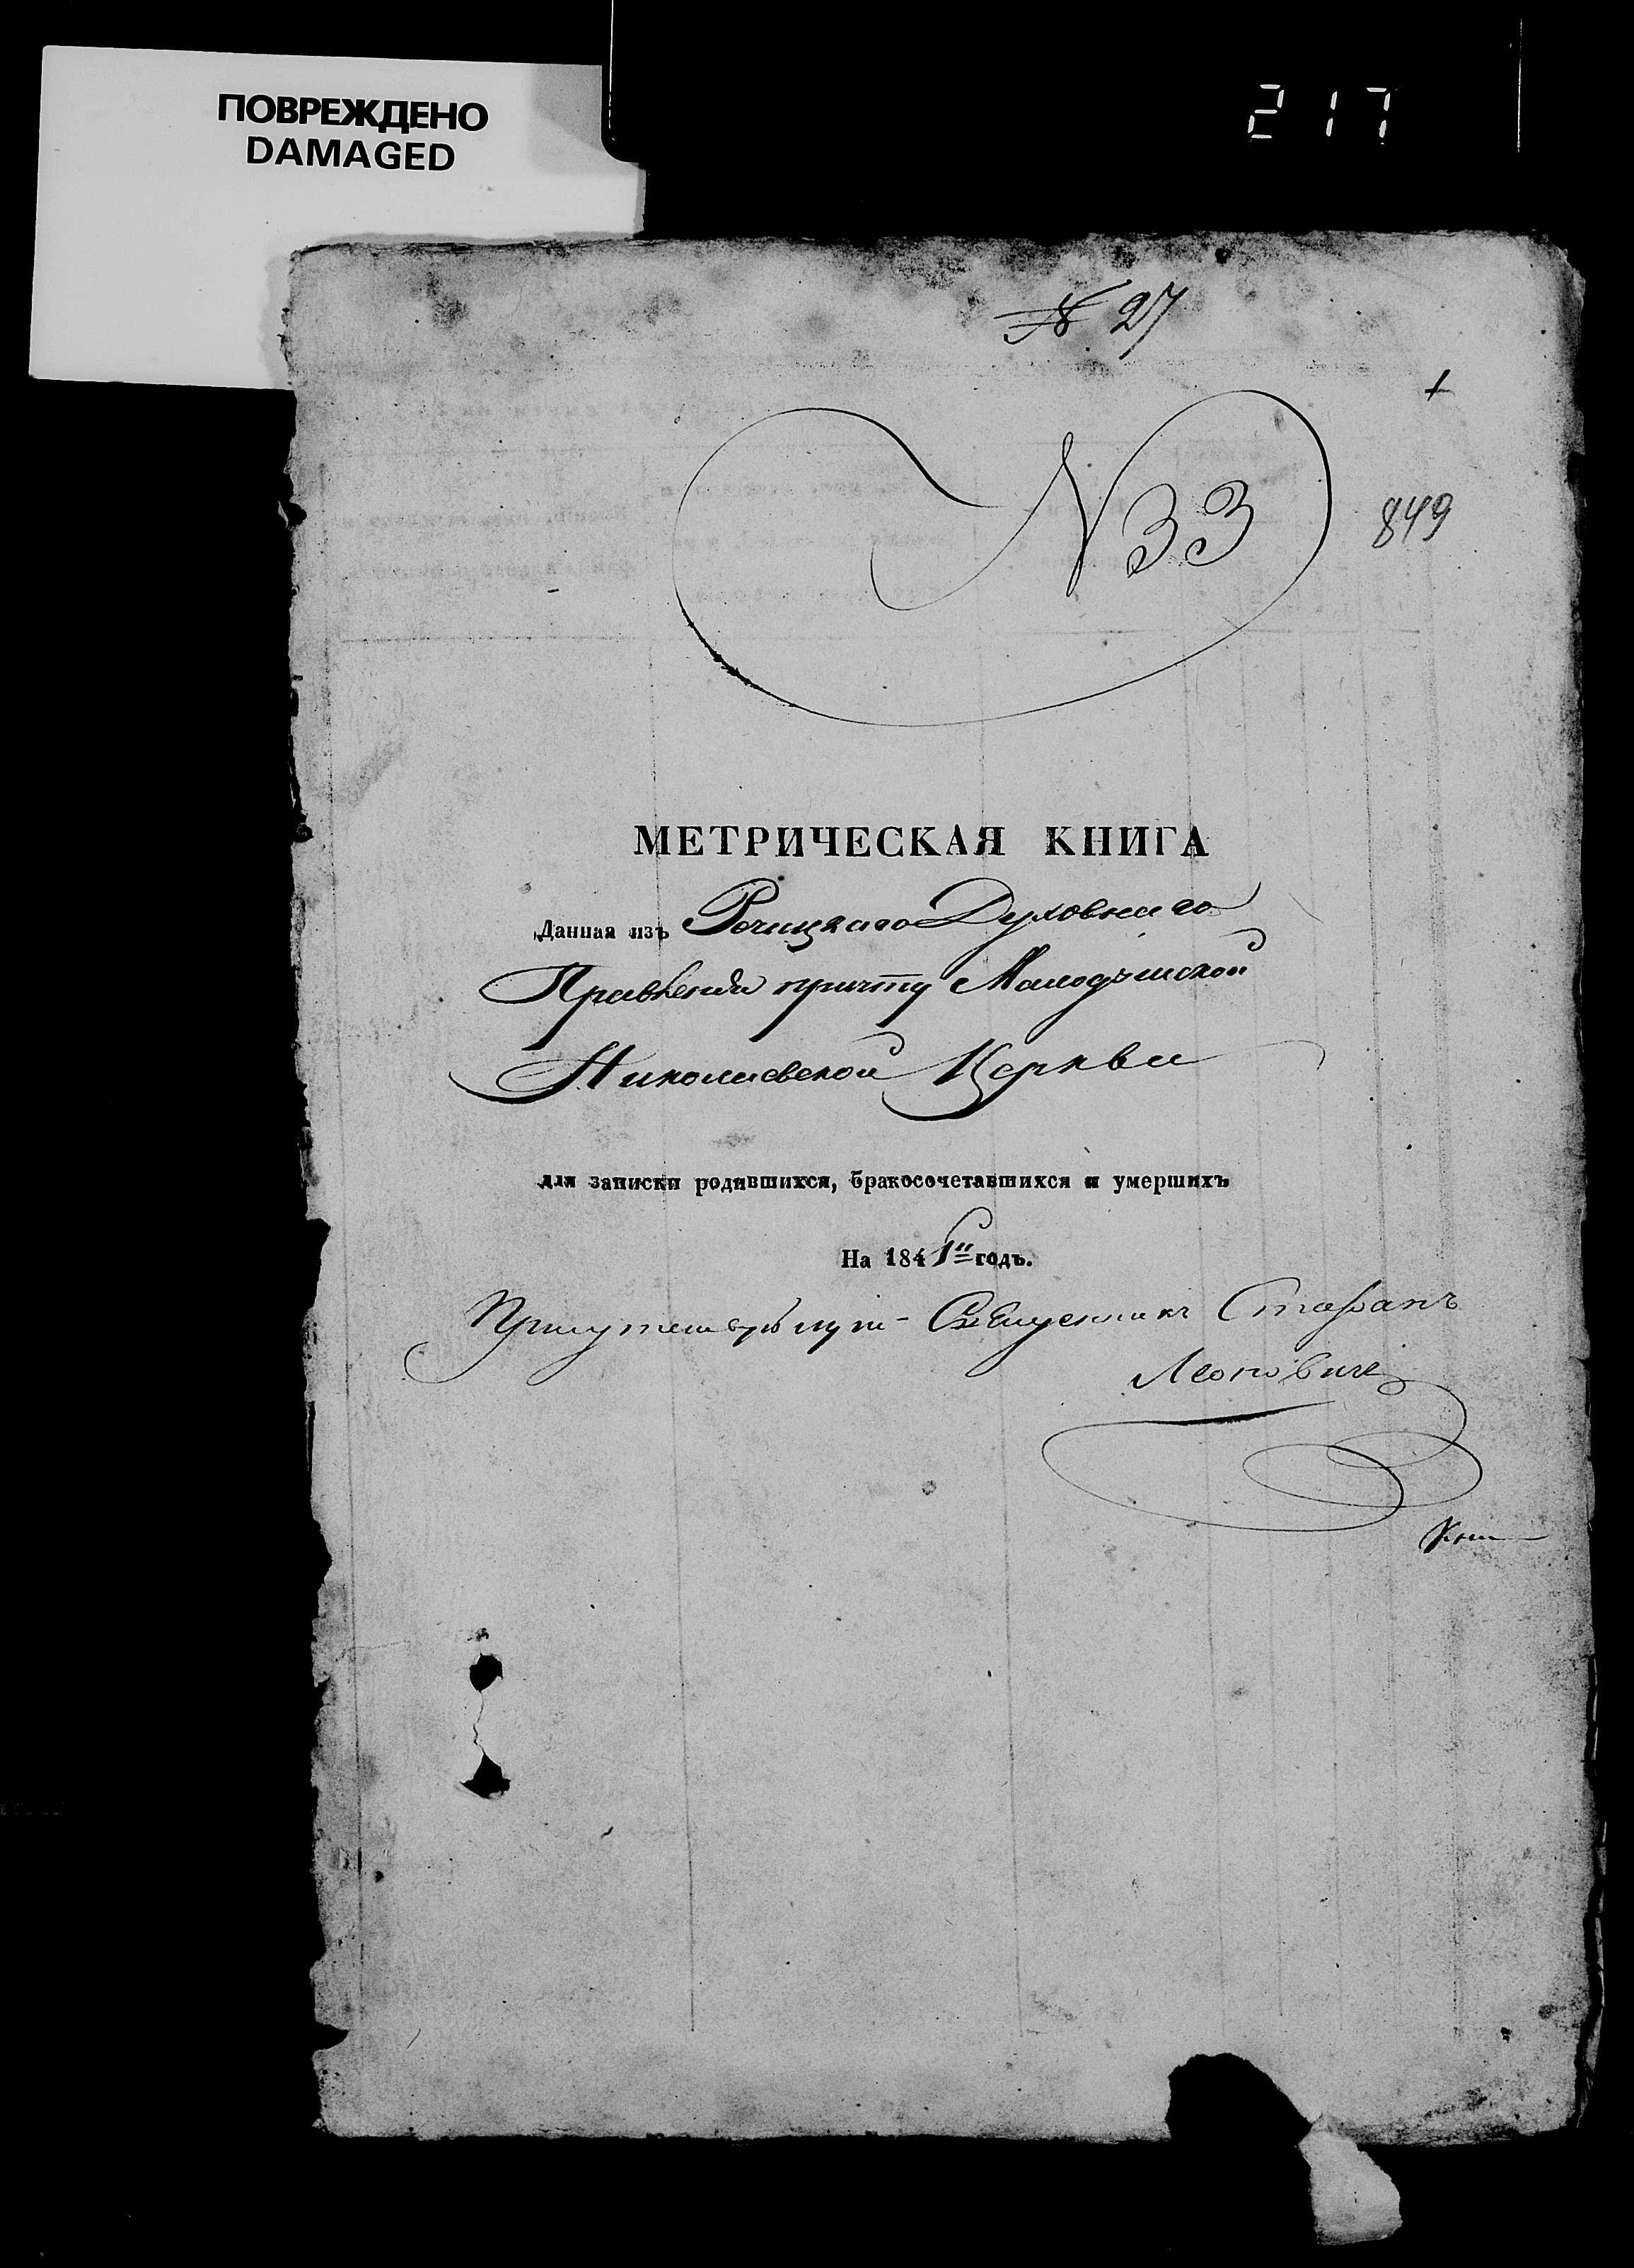 ПОВРЕЖДЕНО
DAMAGED
217
№ 27
N 33
849
МЕТРИЧЕСКАЯ КНИГА
Данная изъ Речицкаго Духовнаго
Правленія причту Малодушской
Николаевской Церкви
для записки родившихся, бракосочетавшихся и умершихъ
На 1841 годъ.
Священникъ Стефанъ
Леоновичь